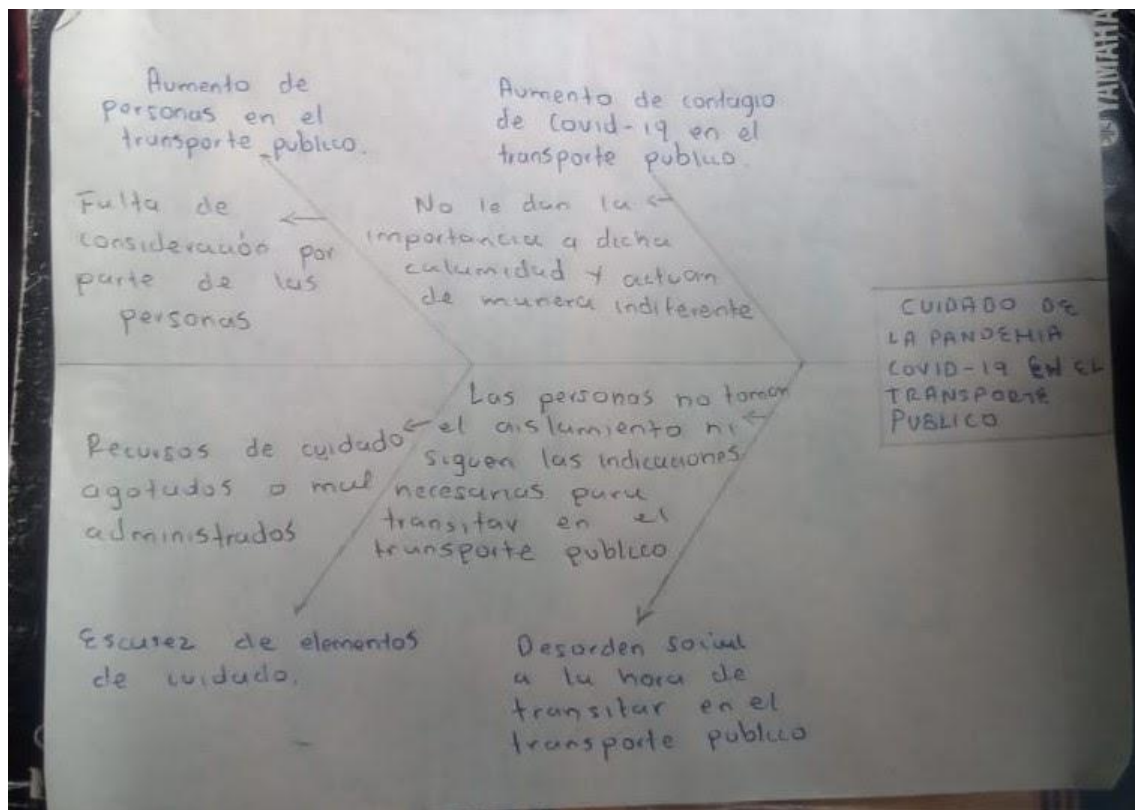 Aumento de
personas en el
transporte publico.
Aumento de contagio
de Covid-19 en el
transporte publico.
Falta de
consideración por
parte de las
personas
No le dan la
importancia a dicha
calamidad y actuan
de manera indiferente
CUIDADO DE
LA PANDEMIA
COVID-19 EN EL
TRANSPORTE
PUBLICO
Recursos de cuidado
agotados o mal
administrados
Las personas no toman
el aislamiento ni
siguen las indicaciones
necesarias para
transitar en el
transporte publico
Escasez de elementos
de cuidado.
Desorden social
a la hora de
transitar en el
transporte publico
YAMAHA